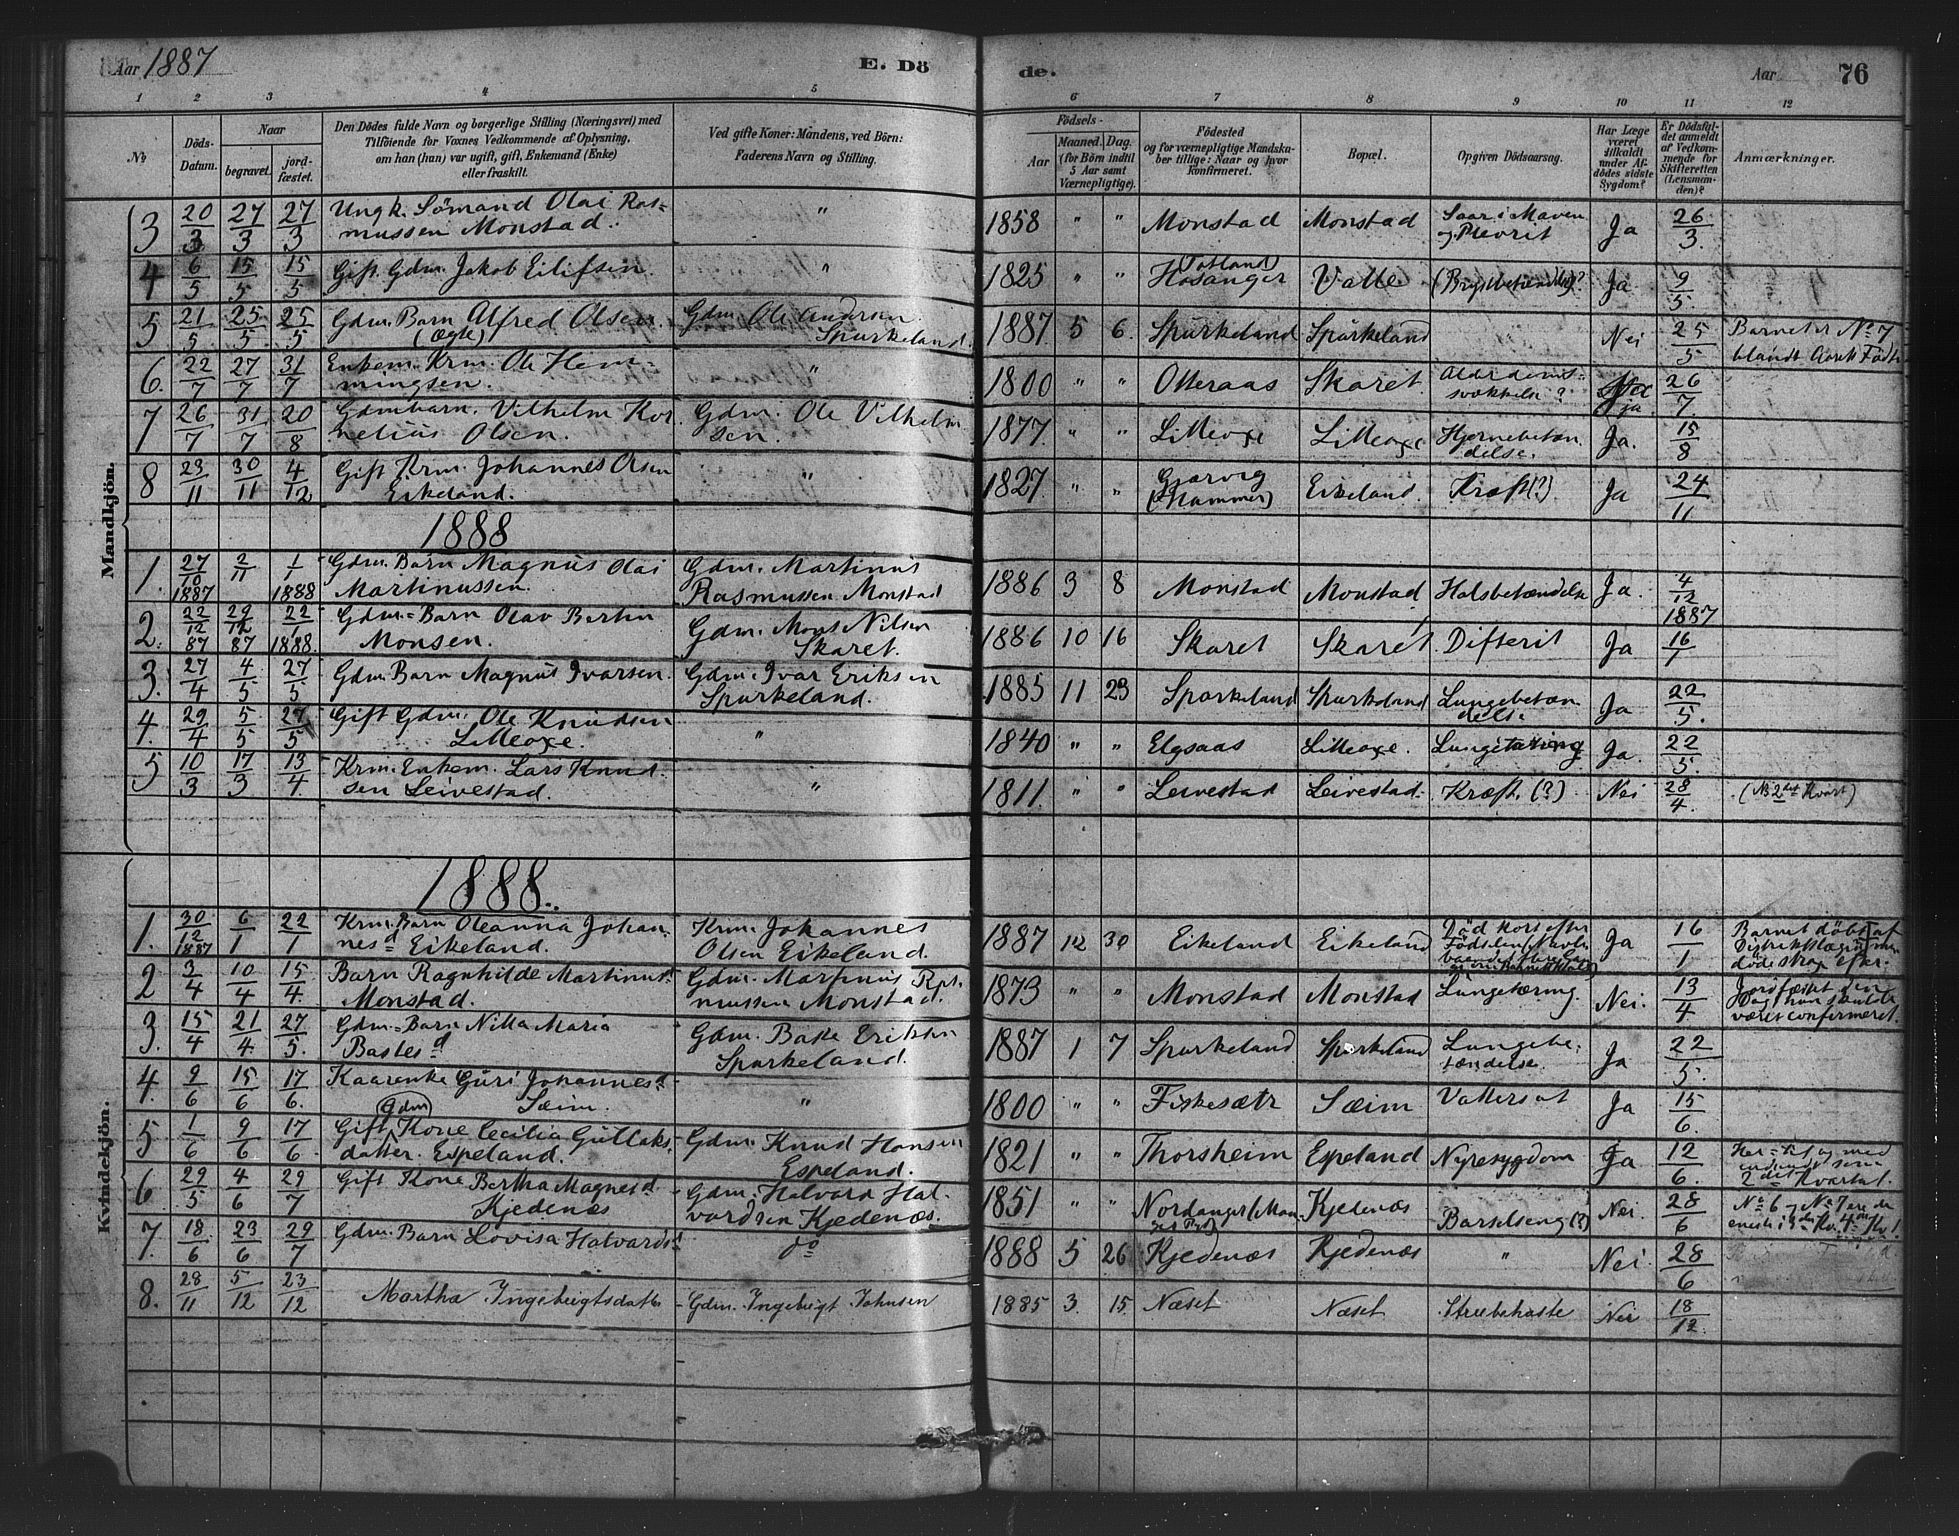 Aar 1887
E. Dö
de.
Aar
76
1 2 3 4 5 6 7 8 9 10 11 12
No
Döds-Datum.
Naar
begravet.
jordfæstet.
Den Dödes fulde Navn og borgerlige Stilling (Næringsvei) med
Tilföiende for Voxnes Vedkommende af Oplysning,
om han (hun) var ugift, gift, Enkemand (Enke)
eller fraskilt.
Ved gifte Koner: Mandens, ved Börn:
Faderens Navn og Stilling.
Födsels-
Aar
Maaned. Dag.
(for Börn indtil
5 Aar samt
Værnepligtige).
Födested
og for værnepligtige Mandskaber tillige: Naar og hvor
konfirmeret.
Bopæl.
Opgiven Dödsaarsag.
Har Læge
været
tilkaldt
under Afdödes sidste
Sygdom?
Er Dödsfaldet anmeldt
af Vedkommende for
Skifteretten
(Lensmanden)?
Anmærkninger.
Mandkjön.
3 20/3 27/3 27/3 Ungk. Sömand Olai Rasmussen Monstad. " 1858 " " Monstad Monstad Saar i Maven og Plevrit Ja 26/3.
4 6/5 15/5 15/5 Gift Gdm. Jakob Eilifsen. " 1825 " " Hosanger Valle (Brystbetændelse)? Ja 9/5.
5 21/5. 25/5. 25/5 Gdm. Barn Alfred Olsen. (Ægte) Gdm Ole Andersen Spurkeland. 1887 5 6. Spurkeland Spurkeland Nei 25/5 Barnet er No 7 blandt Aarets Födte
6. 22/7 27/7 31/7 Enkem. Krm. Ole Hemmingsen. " 1800 " " Otteraas Skaret. Alderdomssvækkelse ? ja. 26/7.
7 26/7 31/7 20/8 Gdmbarn. Vilhelm Kornelius Olsen. Gdm. Ole Vilhelmsen. 1877. " " Lilleoxe Lilleoxe Hjernebetændelse. Ja. 15/8
8 23/11 30/11 4/12 Gift Krm. Johannes Olsen Eikeland. " 1827 " " Gjærvig (Hammer) Eikeland. Kræft (?) Ja 24/11
1888
1. 27/10 1887 2/11 1/1 1888 Gdm. Barn Magnus Olai Martinussen. Gdm. Martinus Rasmussen Monstad 1886 3 8 Monstad Monstad Halsbetændelse Ja. 4/12 1887
2. 22/12 87 29/12 87 22/1 1888. Gdm.-Barn Olav Bertin Monsen. Gdm. Mons Nilsen Skaret. 1886 10 16 Skaret Skaret. Difterit Ja 16/1
3. 27/4 4/5 27/5 Gdm. Barn Magnus Ivarsen. Gdm. Ivar Eriksen Spurkeland. 1885 11 23 Spurkeland Spurkeland Lungebetændelse Ja 22/5.
4. 29/4 5/5 27/5 Gift Gdm. Ole Knudsen Lilleoxe. " 1840 " " Elgsaas Lilleoxe. Lungetæring Ja. 22/5.
5 10/3 17/3 13/4 Krm. Enkem. Lars Knudsen Leivestad. " 1811. " " Leivestad Leivestad. Kræft. (?) Nei 28/4. (No 2det Kvart)
Kvindekjön.
1888.
1. 30/12 1887 6/1 22/1 Krm. Barn Oleanna Johannesd Eikeland. Krm. Johannes Olsen Eikeland. 1887 12 30 Eikeland Eikeland Död kort efter Födselen Ja 16/1 Barnet döbt af Distriktslægen men döde strax efter.
2 3/4 10/4 15/4. Barn Ragnhilde Martinusd Monstad. Gdm. Martinus Rasmussen Monstad. 1873 " " Monstad Monstad Lungetæring. Nei. 13/4 Jordfæstet den Dag hun skulde været confirmeret.
3. 15/4 21/4. 27/5. Gdm.-Barn Nilla Maria Bastesd Gdm. Baste Eriksen Spurkeland. 1887 1 7 Spurkeland Spurkeland Lungebetændelse. Ja 22/5.
4. 9/6 15/6 17/6. Kaarenke Guri Johannesd. Sæim. " 1800 " " Fiskesætr Sæim Vattersot Ja 15/6.
5 1/6 9/6 17/6 Gift Gdm Kone Cecilia Gullaksdatter. Espeland. Gdm. Knud Hansen Espeland. 1821 " " Thorsheim Espeland Nyresygdom Ja 12/6. Her-til og med 2det Kvartal.
6 29/5 4/6 29/7 Gift Kone Bertha Magnesd. Kjedenæs Gdm. Halvard Halvardsen Kjedenæs. 1851 " " Nordanger Kjedenæs Barselseng (?) Nei. 28/6 No 6 og No 7 ere de eneste i 3die Kv.
7. 18/6 23/6 29/7 Gdm. Barn Lovisa Halvardsd do 1888 5 26 Kjedenæs Kjedenæs " Nei. 28/6
8. 28/11 5/12 23/12 Martha Ingebrigtsdatter Gdm. Ingebrigt Johnsen 1885 3. 15. Næset Næset Strubehoste Nei 18/12.